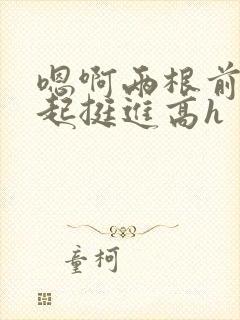 嗯啊两根前
起挺进高h
童柯